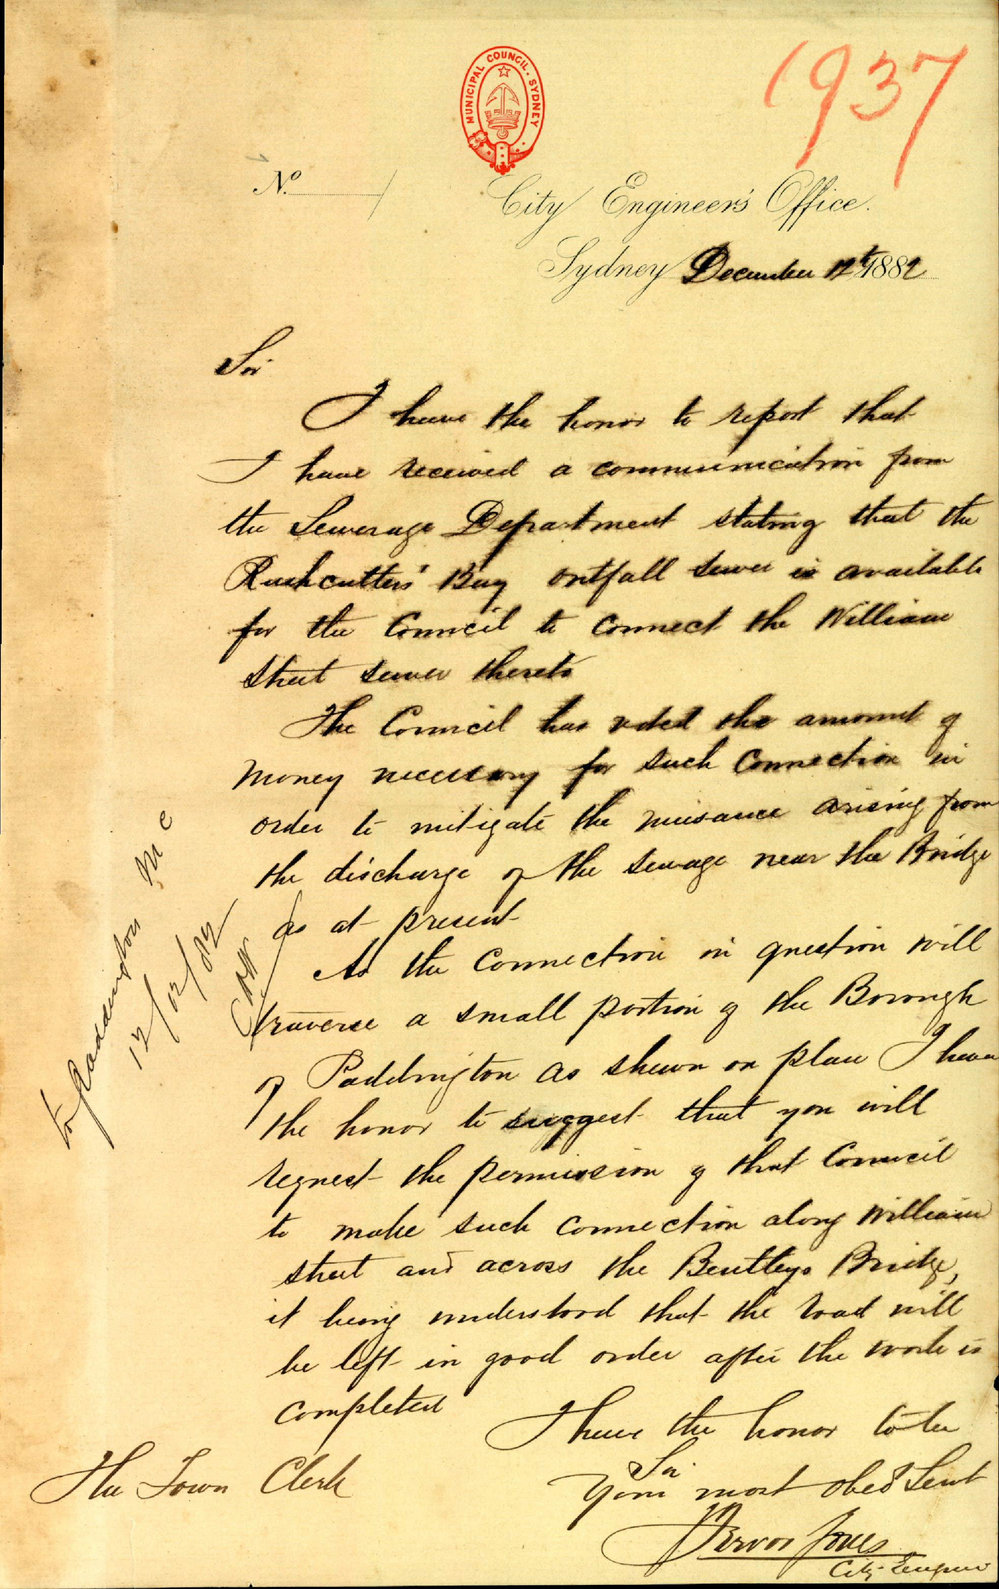 1937
MUNICIPAL COUNCIL. SYDNEY
No.
City Engineer's Office.
Sydney December 12th 1882
Sir
I have the honor to report that
I have received a communication from
the Sewerage Department stating that the
Rushcutters' Bay outfall sewer is available
for the Council to connect the William
street sewer thereto
The Council has voted the amount of
money necessary for such connection in
order to mitigate the nuisance arising from
the discharge of the sewage near the Bridge
as at present
As the connection in question will
traverse a small portion of the Borough
of Paddington as shewn on plan I have
the honor to suggest that you will
request the permission of that Council
to make such connection along William
street and across the Bentleys Bridge,
it being understood that the road will
be left in good order after the work is
completed
I have the honor to be
Sir
Your most obed Sevt
Jones
City Engineer
The Town Clerk
to Paddington M C
12/12/82